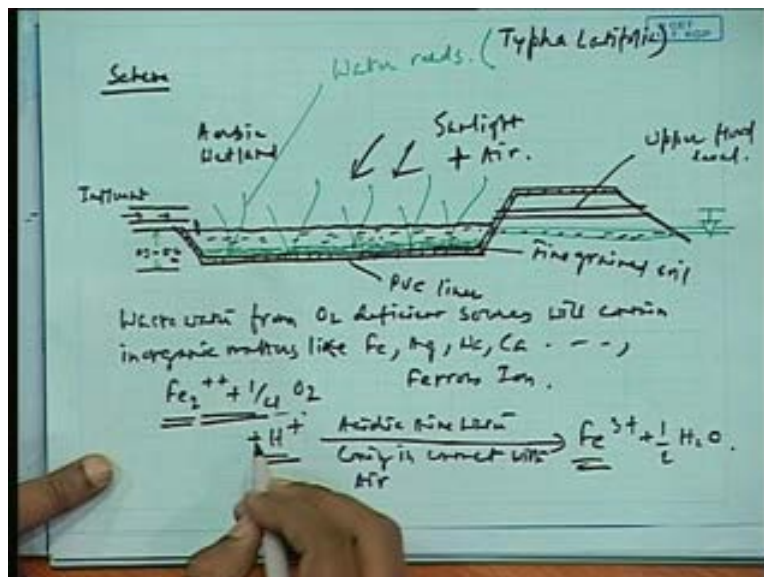 Water reeds. (Typha Latifolia)
Scheme
Aerobic
Wetland
Sunlight
+ Air.
Upper flood
level.
Influent
Fine grained soil
PVC liner
Waste water from O2 deficient sources will contain
inorganic matters like Fe, Mg, Ca - - - ,
Ferrous Ion.
Fe2++ + 1/4 O2
+ H+
Acidic mine water
Coming in contact with
Air
Fe3+ + 1/2 H2O.